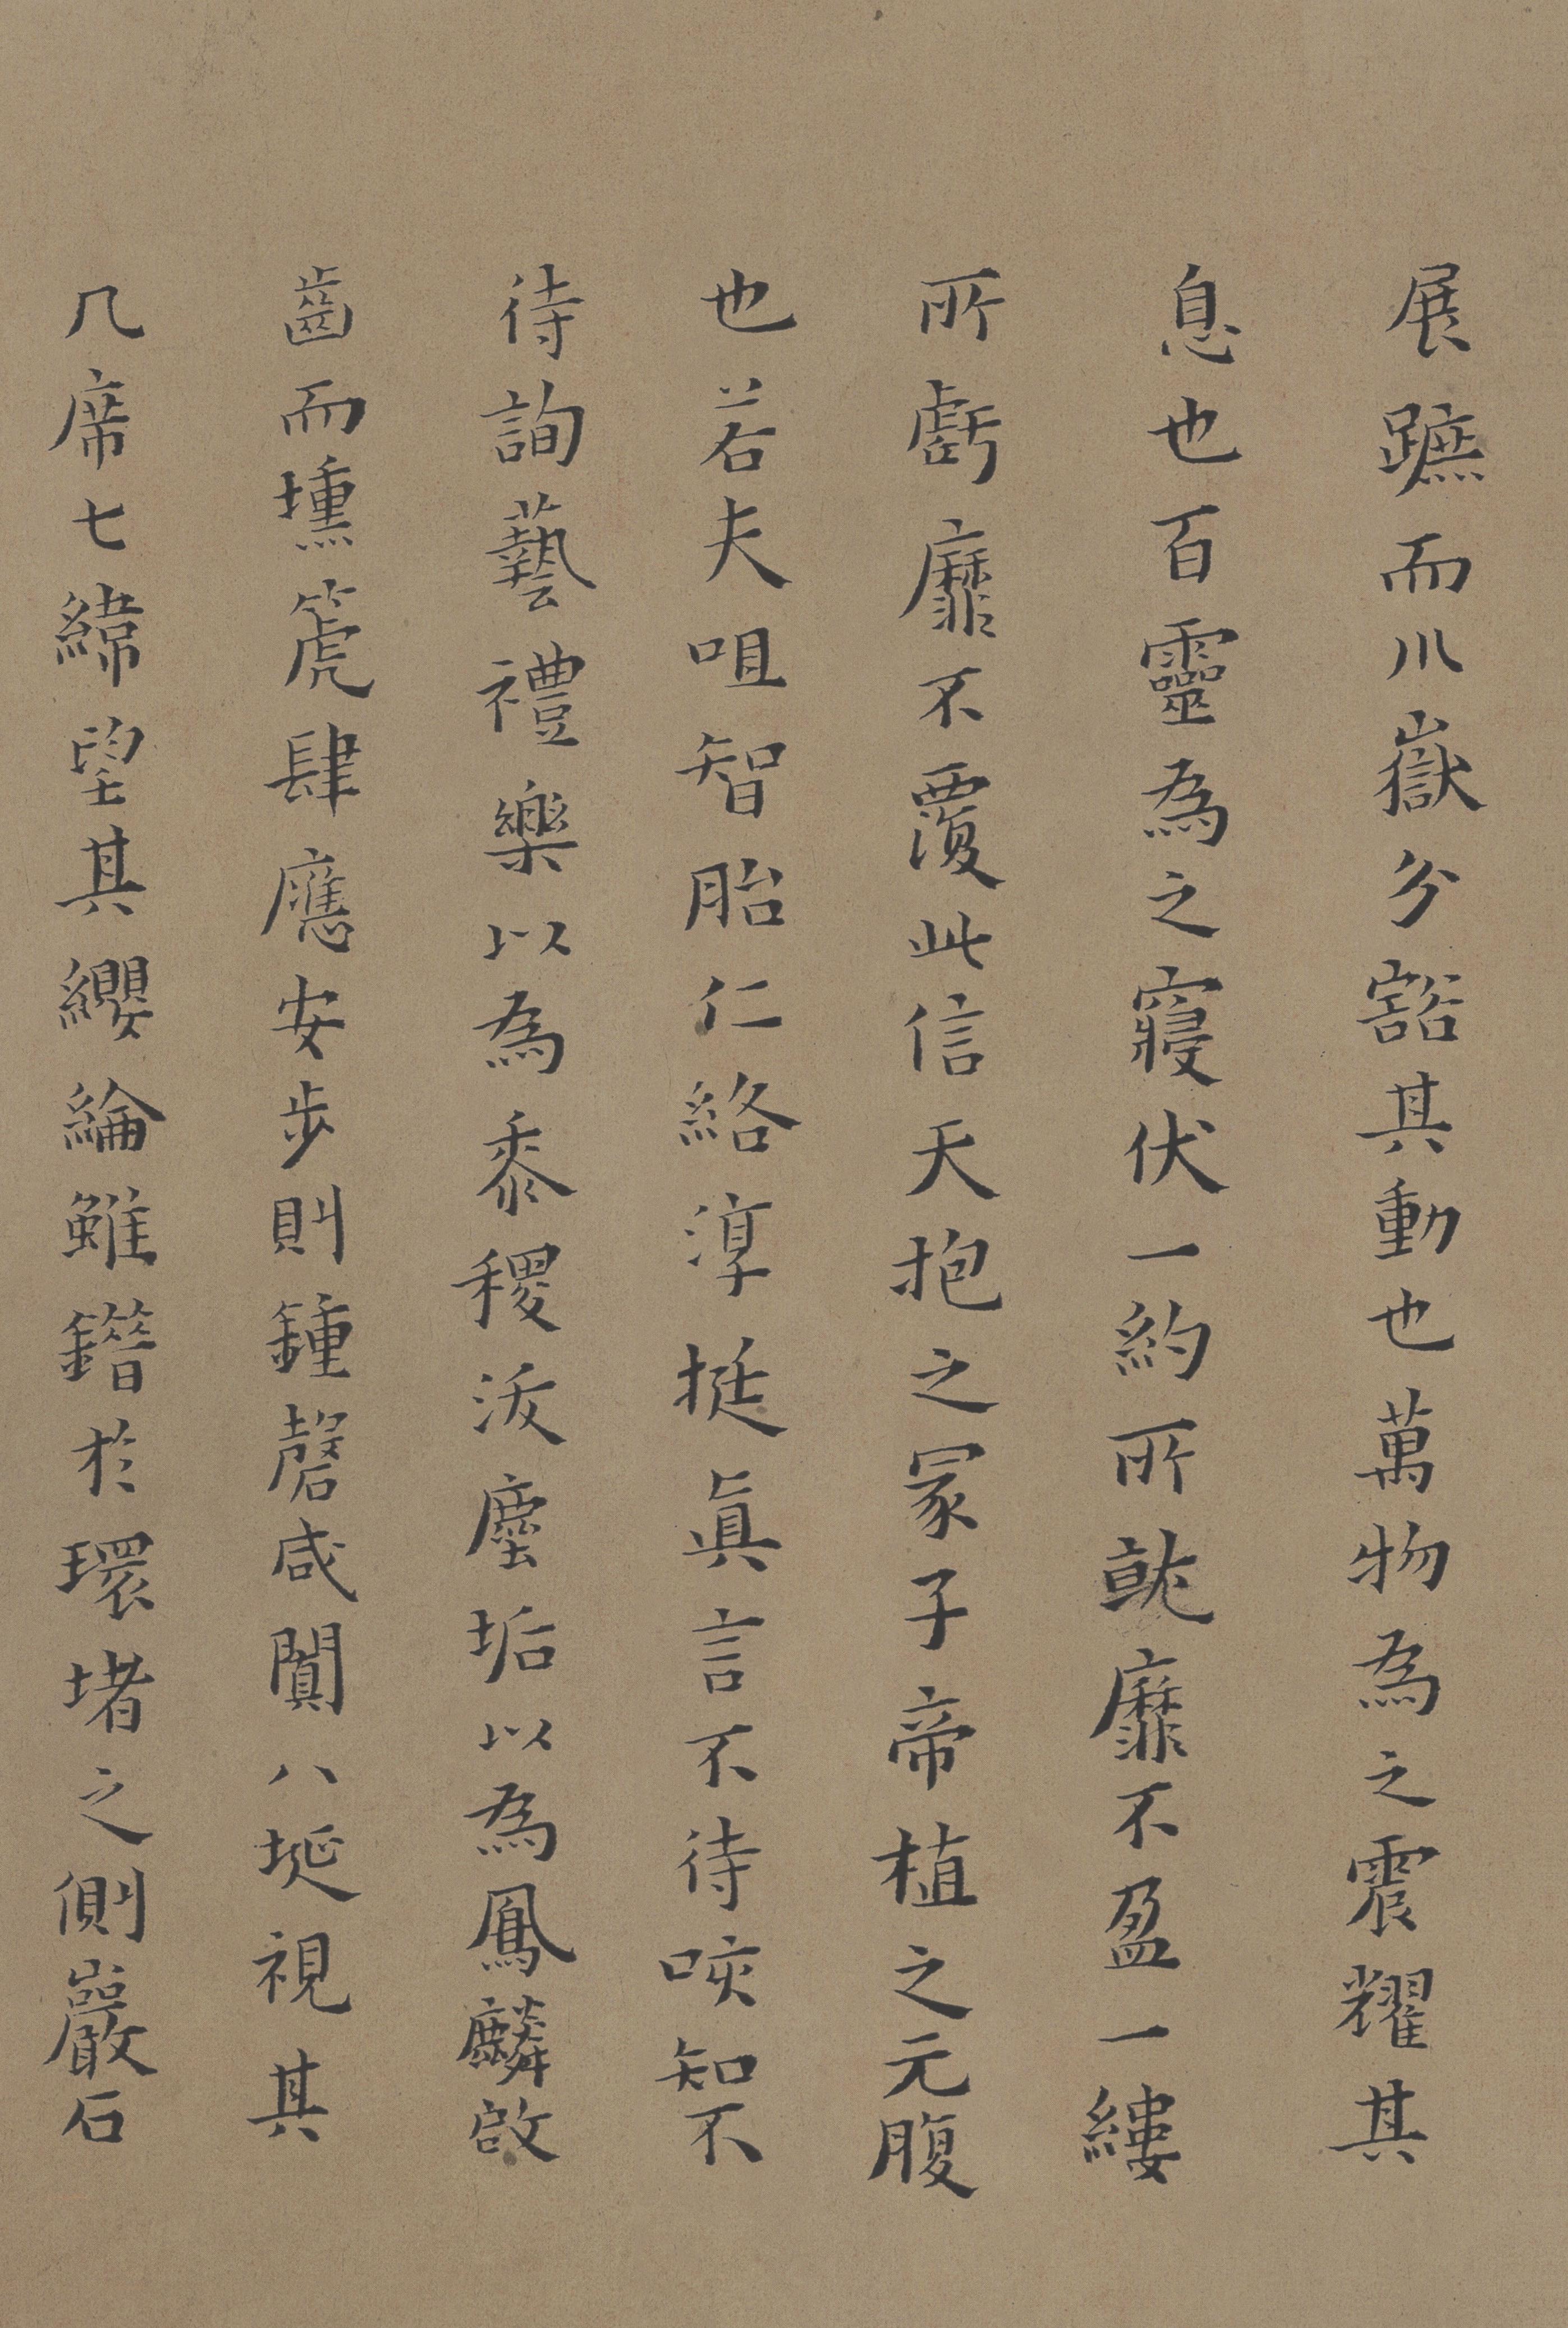 展蹠而川嶽分豁其動也萬物為之震耀其
息也百靈為之寢伏一約所就靡不盈一縷
所虧靡不覆此信天抱之冢子帝植之元腹
也若夫咀智胎仁絡淳挺真言不待唊知不
待詢藝禮樂以為黍稷泼塵垢以為鳳麟啟
齒而壎篪肆應安步則鍾磬咸闐八埏視其
几席七緯望其纓綸雖鐕於環堵之側巖石